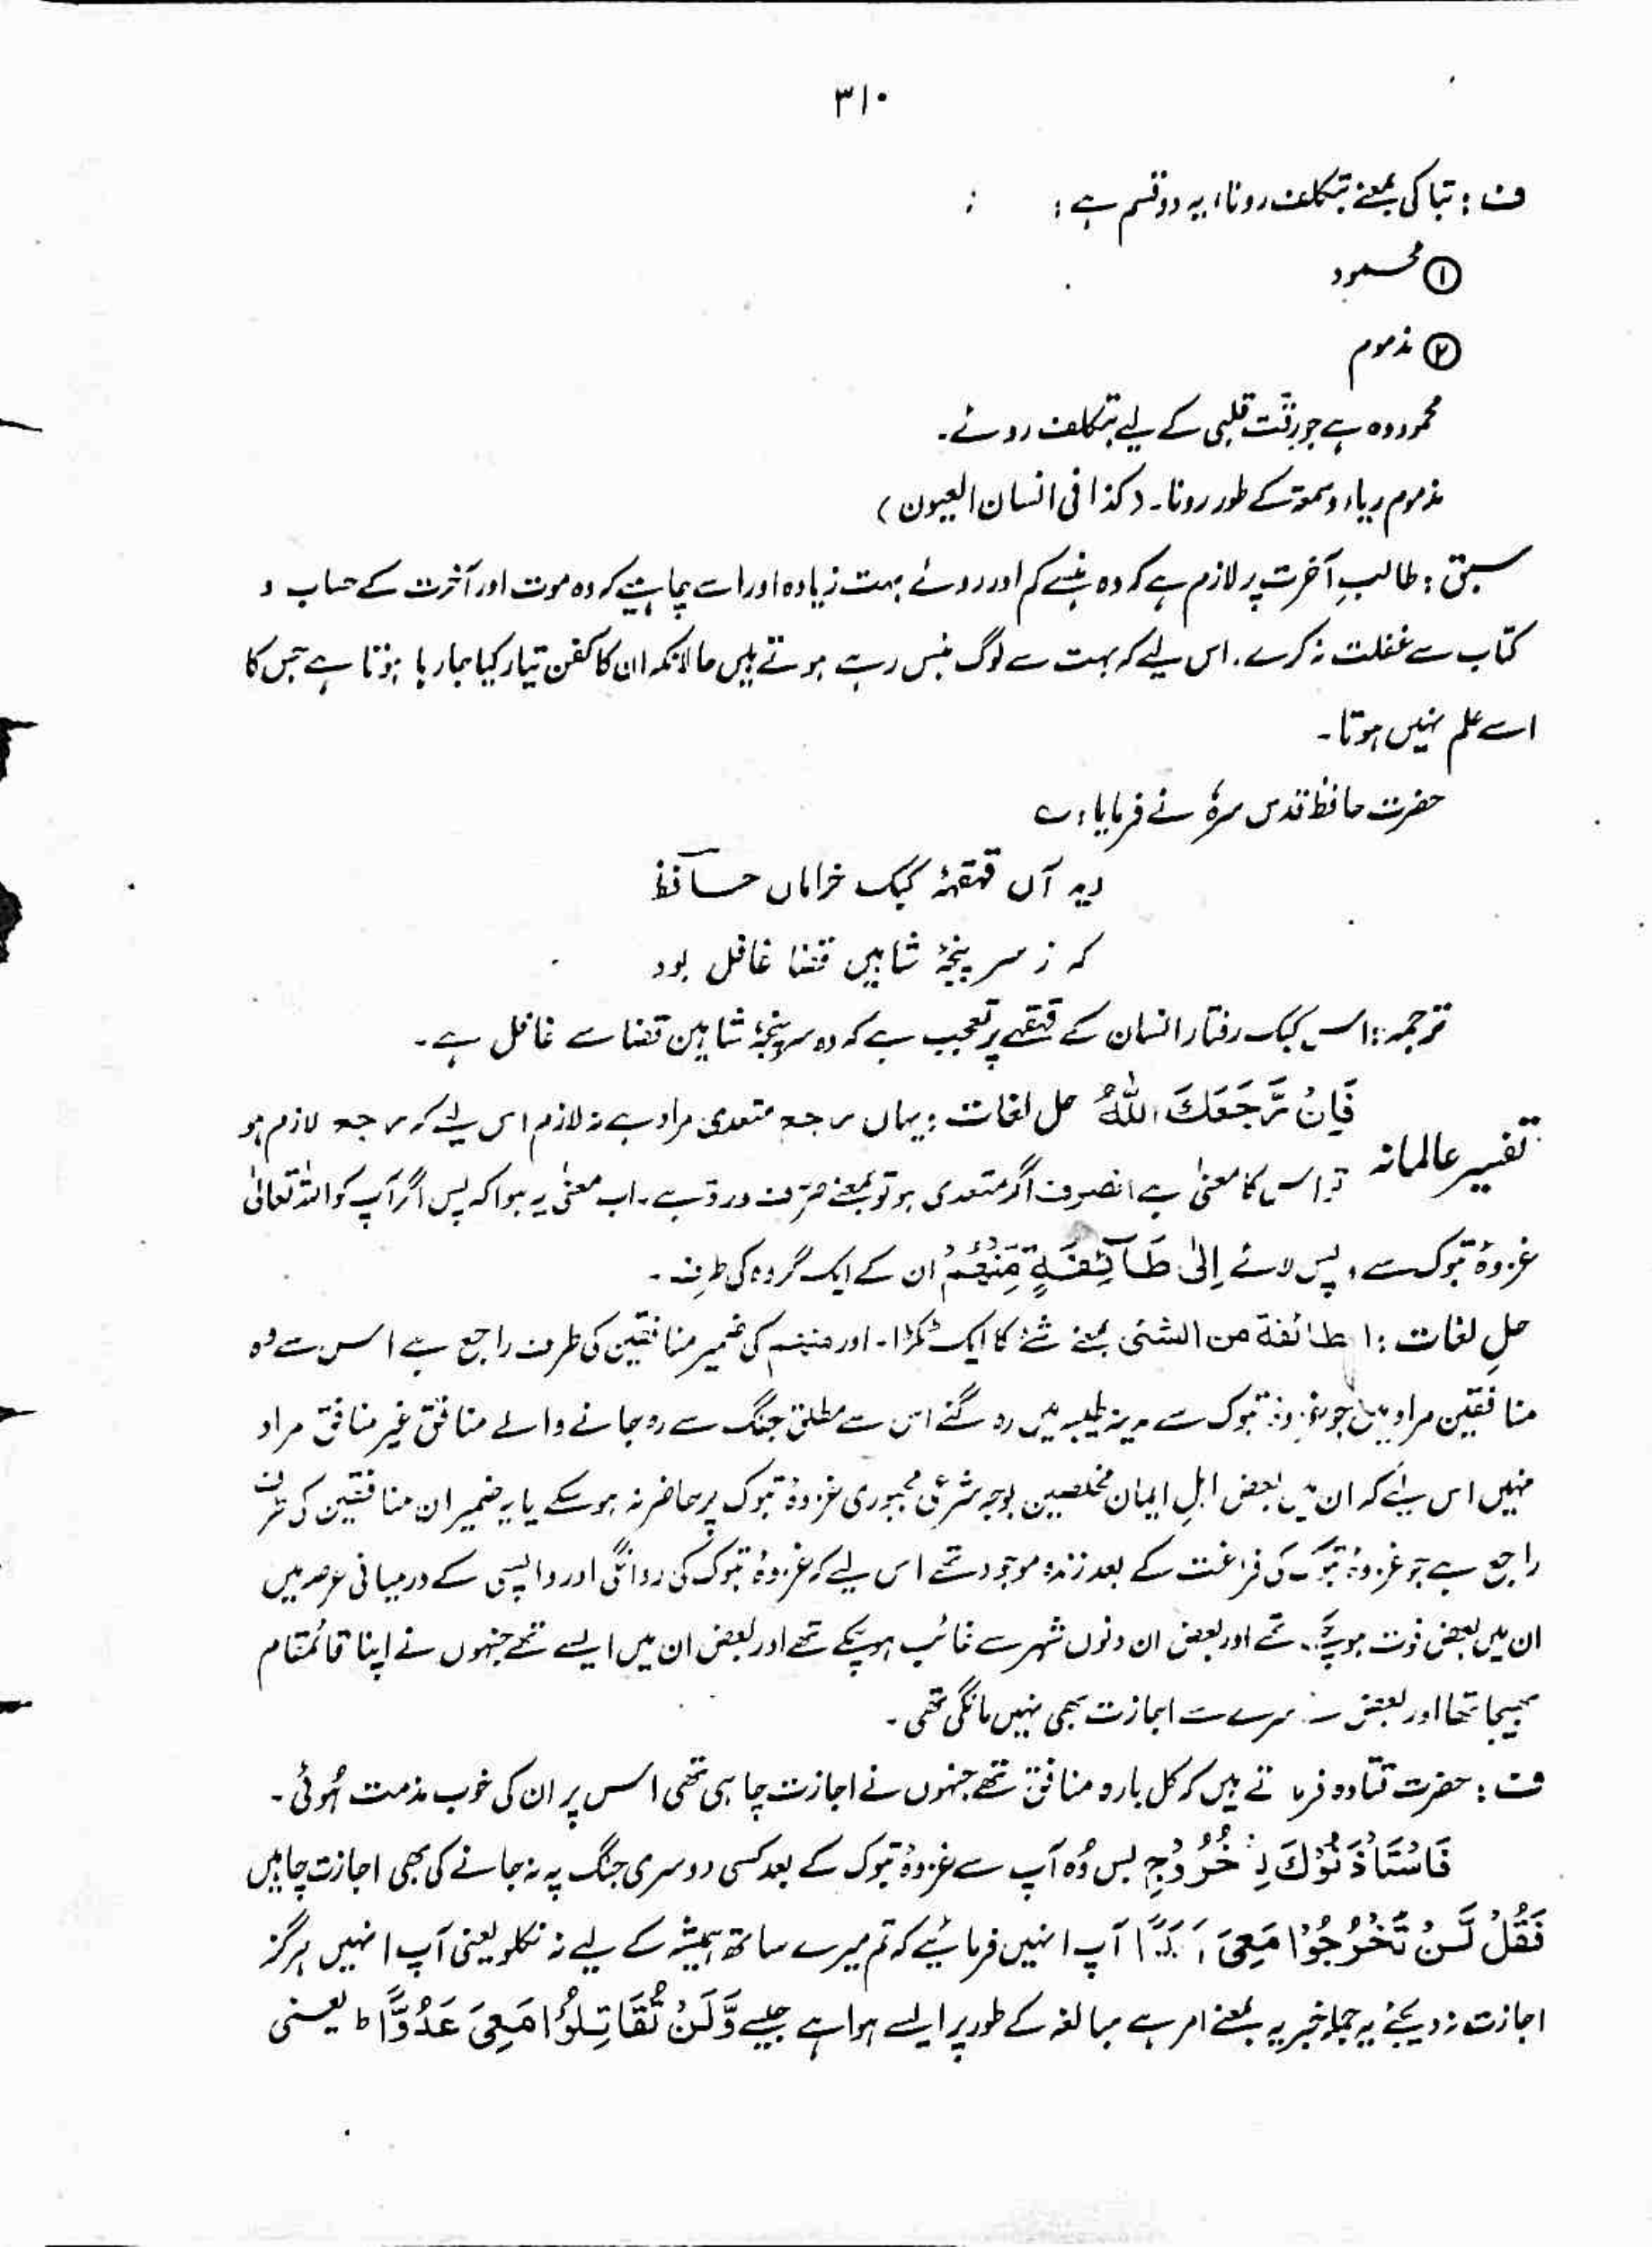 ۳۱۰
ف : تباکی بمعنے بتکلف رونا، یہ دو قسم ہے :
① محمود
② مذموم
محمود وہ ہے جو رقّت قلبی کے لیے بتکلف روئے۔
مذموم ریاء و سمعۃ کے طور رونا۔ (کذا فی انسان العیون)
سبق : طالبِ آخرت پر لازم ہے کہ وہ ہنسے کم اور روئے بہت زیادہ اور اسے چاہیے کہ وہ موت اور آخرت کے حساب و
کتاب سے غفلت نہ کرے۔ اس لیے کہ بہت سے لوگ ہنس رہے ہوتے ہیں حالانکہ ان کا کفن تیار کیا جا رہا ہوتا ہے جس کا
اسے علم نہیں ہوتا۔
حضرت حافظ قدس سرہٗ نے فرمایا: ؎
دید آں قہقہۂ کبک خراماں حافظؔ
کہ ز سر پنجۂ شاہیں قضا غافل بود
ترجمہ : اس کبک رفتار انسان کے قہقہے پر تعجب ہے کہ وہ سرپنجۂ شاہین قضا سے غافل ہے۔
تفسیر عالمانہ فَاِنْ رَّجَعَكَ اللّٰهُ حل لغات : یہاں رجع متعدی مراد ہے نہ لازم اس لیے کہ رجع لازم ہو
تو اس کا معنیٰ ہے انصرف اگر متعدی ہو تو بمعنے صرّف و ردّ ہے۔ اب معنیٰ یہ ہوا کہ پس اگر آپ کو اللہ تعالیٰ
غزوۂ تبوک سے واپس لائے اِلٰى طَآئِفَةٍ مِّنْهُمْ ان کے ایک گروہ کی طرف۔
حلِ لغات : الطائفة من الشئ بمعنے شئے کا ایک ٹکڑا۔ اور منہم کی ضمیر منافقین کی طرف راجع ہے اس سے وہ
منافقین مراد ہیں جو غزوۂ تبوک سے مدینہ طیبہ میں رہ گئے اس سے مطلق جنگ سے رہ جانے والے منافق غیر منافق مراد
نہیں اس لیے کہ ان میں بعض اہلِ ایمان مخلصین بوجہ شرعی مجبوری غزوۂ تبوک پر حاضر نہ ہو سکے یا یہ ضمیر ان منافقین کی طرف
راجع ہے جو غزوۂ تبوک کی فراغت کے بعد زندہ موجود تھے اس لیے کہ غزوۂ تبوک کی روانگی اور واپسی کے درمیانی عرصہ میں
ان میں بعض فوت ہو چکے تھے اور بعض ان دنوں شہر سے غائب ہو چکے تھے اور بعض ان میں ایسے تھے جنہوں نے اپنا قائمقام
بھیجا تھا اور بعض نے سرے سے اجازت بھی نہیں مانگی تھی۔
ف : حضرت قتادہ فرماتے ہیں کہ کل بارہ منافق تھے جنہوں نے اجازت چاہی تھی اس پر ان کی خوب مذمت ہُوئی۔
فَاسْتَاْذَنُوْكَ لِلْخُرُوْجِ پس وُہ آپ سے غزوۂ تبوک کے بعد کسی دوسری جنگ پہ نہ جانے کی بھی اجازت چاہیں
فَقُلْ لَّنْ تَخْرُجُوْا مَعِىَ اَبَدًا آپ انہیں فرمائیے کہ تم میرے ساتھ ہمیشہ کے لیے نہ نکلو یعنی آپ انہیں ہرگز
اجازت نہ دیجئے یہ جملہ خبریہ بمعنے امر ہے مبالغہ کے طور پر ایسے ہوا ہے جیسے وَّلَنْ تُقَاتِلُوْا مَعِىَ عَدُوًّا ط یعنی